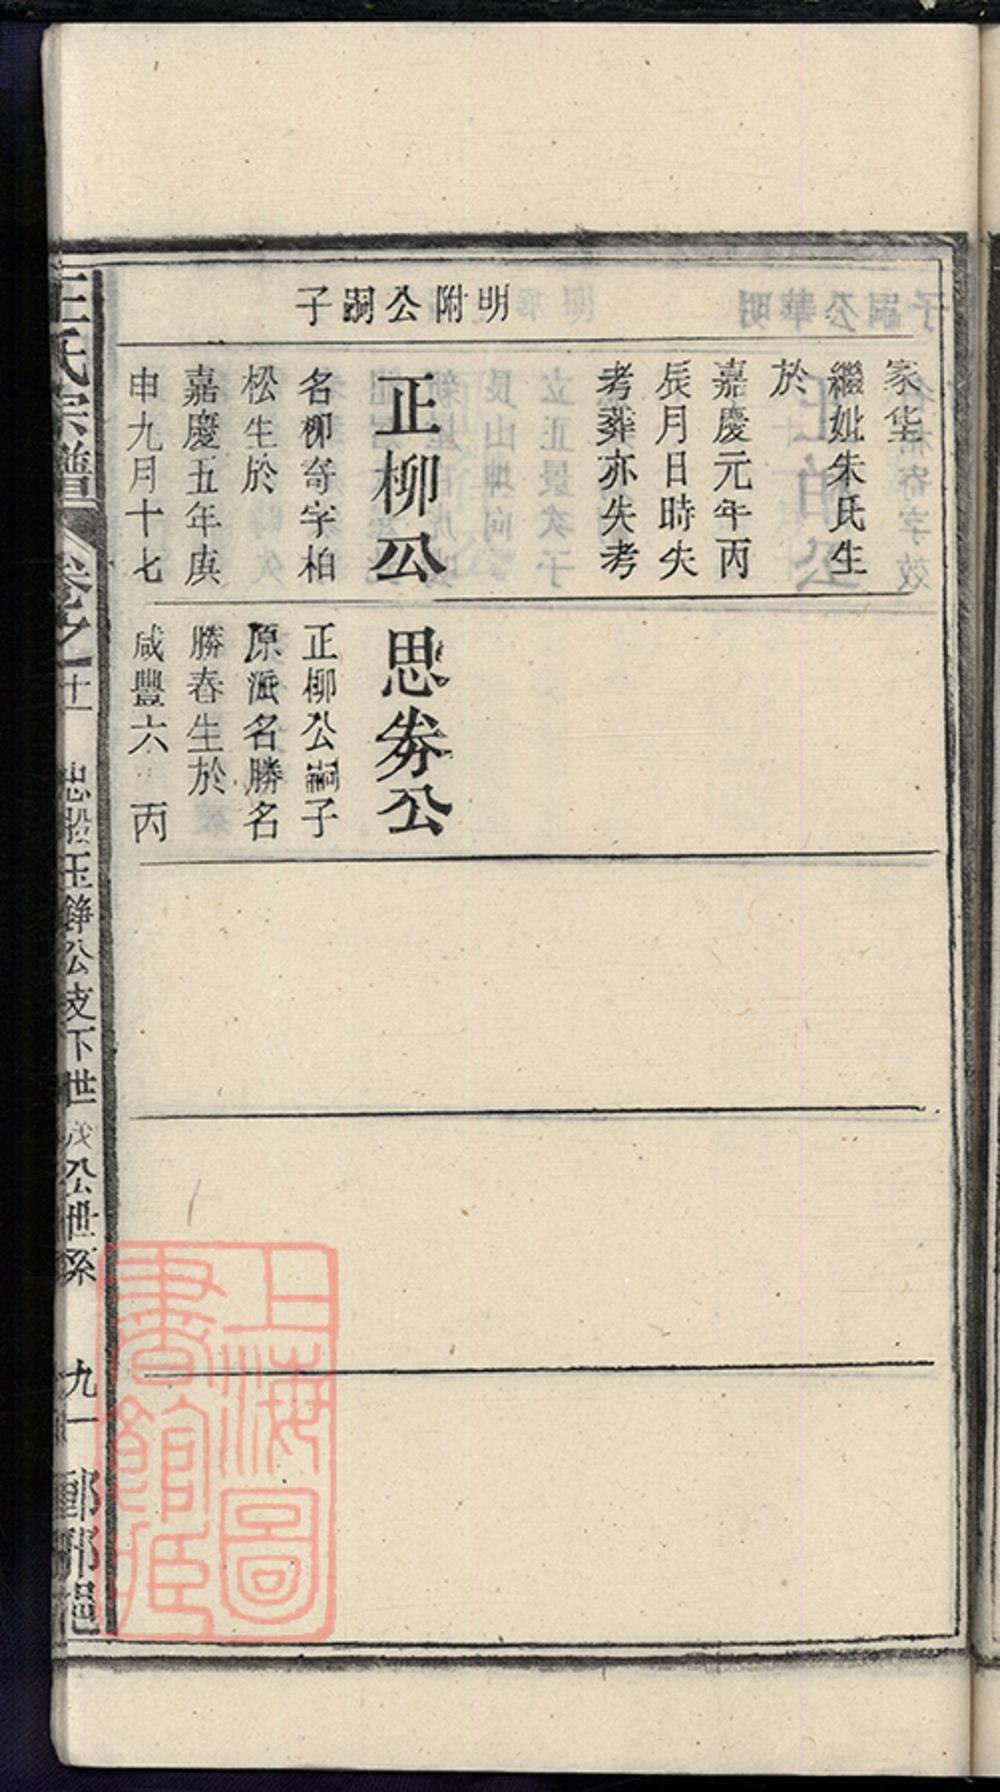 明附公嗣子
家坐
繼妣朱氏生
於
嘉慶元年丙
辰月日時失
考葬亦失考
正柳公
名柳寄字柏
松生於
嘉慶五年庚
申九月十七
思劵公
正柳公嗣子
原派名勝名
勝春生於
咸豐六 丙
王氏宗譜
卷之十一
忠 玉錚公支下世茂公世系
九一
上海圖
書館臧